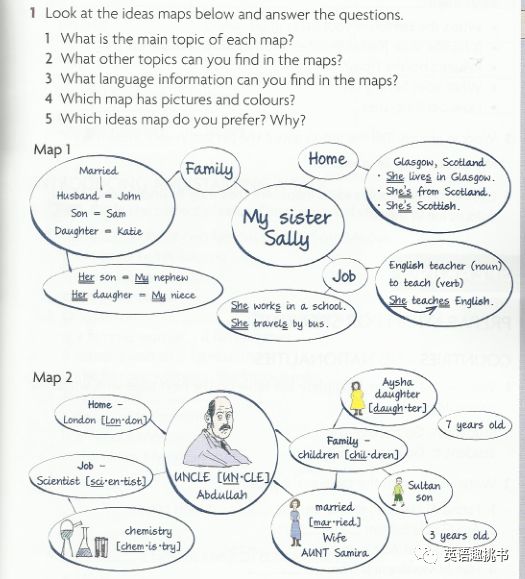 1 Look at the ideas maps below and answer the questions.
1 What is the main topic of each map?
2 What other topics can you find in the maps?
3 What language information can you find in the maps?
4 Which map has pictures and colours?
5 Which ideas map do you prefer? Why?
Map 1
Married
Husband = John
Son = Sam
Daughter = Katie
Family
Home
Glasgow, Scotland
· She lives in Glasgow.
· She's from Scotland.
· She's Scottish.
My sister
Sally
Her son = My nephew
Her daugher = My niece
Job
She works in a school.
She travels by bus.
English teacher (noun)
to teach (verb)
She teaches English.
Map 2
Home –
London [Lon·don]
Job –
Scientist [sci·en·tist]
chemistry
[chem·is·try]
UNCLE [UN·CLE]
Abdullah
Aysha
daughter
[daugh·ter]
7 years old
Family –
children [chil·dren]
Sultan
son
3 years old
married
[mar·ried]
Wife
AUNT Samira
英语趣挑书